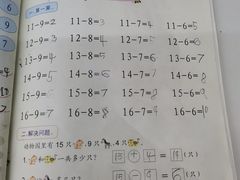 一.算一算。
11-9=2 11-8=3 11-7=4 11-6=5
12-9=3 12-8=4 12-7=5 12-6=6
13-9=4 13-8=5 13-7=6 13-6=7
14-9=5 14-8=6 14-7=7 14-6=8
15-9=6 15-8=7 15-7=8 15-6=9
16-9=7 16-8=8 16-7=9 16-6=10
二.解决问题。
动物园里有 15 只 ,9 只 ,4 只
1. 和 一共多少只?
15 + 4 = 19 (只)